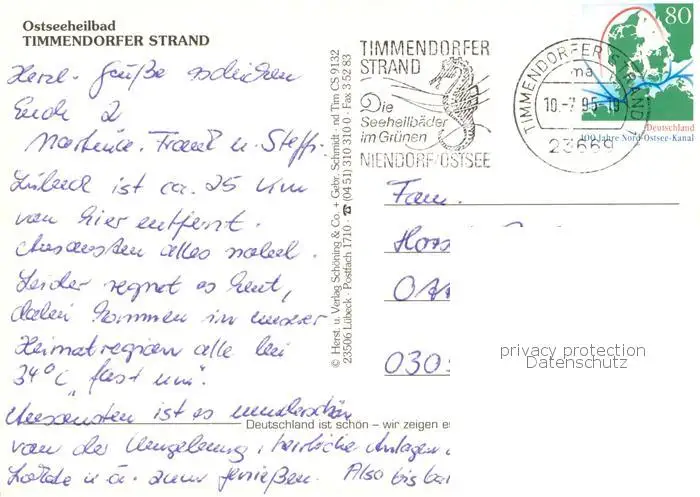 Ostseeheilbad
TIMMENDORFER STRAND
Herzl. Grüße schicken
Euch 2
Martina, Frank u. Steffi.
Lübeck ist ca. 25 km
von hier entfernt.
Ansonsten alles
Leider regnet es heut,
dabei kommen in unserer
Heimatregion alle bei
34°C „fast um".
Ansonsten ist es wunderschön
von der Umgebung, herrliche Anlagen
u. ä. zum genießen. Also bis
Deutschland ist schön – wir zeigen es
© Herst. u. Verlag Schöning & Co. + Gebr. Schmidt · und Tim CS 9132
23506 Lübeck · Postfach 1710 · ☎ (04 51) 310 310 0 · Fax 3 52 83
TIMMENDORFER
STRAND
Die
Seeheilbäder
im Grünen
NIENDORF/OSTSEE
TIMMENDORFER STRAND 1
ma
10.-7.95-18
23669
80
Deutschland
100 Jahre Nord-Ostsee-Kanal
Fam.
Hors
030
privacy protection
Datenschutz